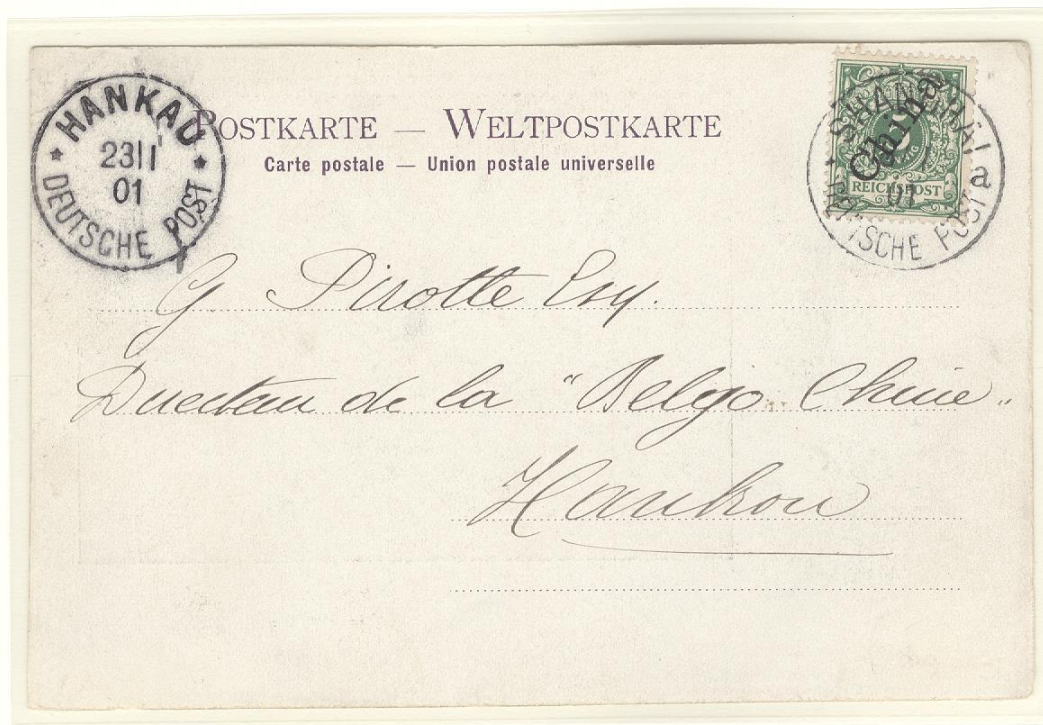 HANKAU
23/1
01
DEUTSCHE POST
POSTKARTE — WELTPOSTKARTE
Carte postale — Union postale universelle
China
REICHSPOST
SHANGHAI
01
a
DEUTSCHE POST
G. Pirotte Esq.
Directeur de la "Belgo Chine"
Hankou